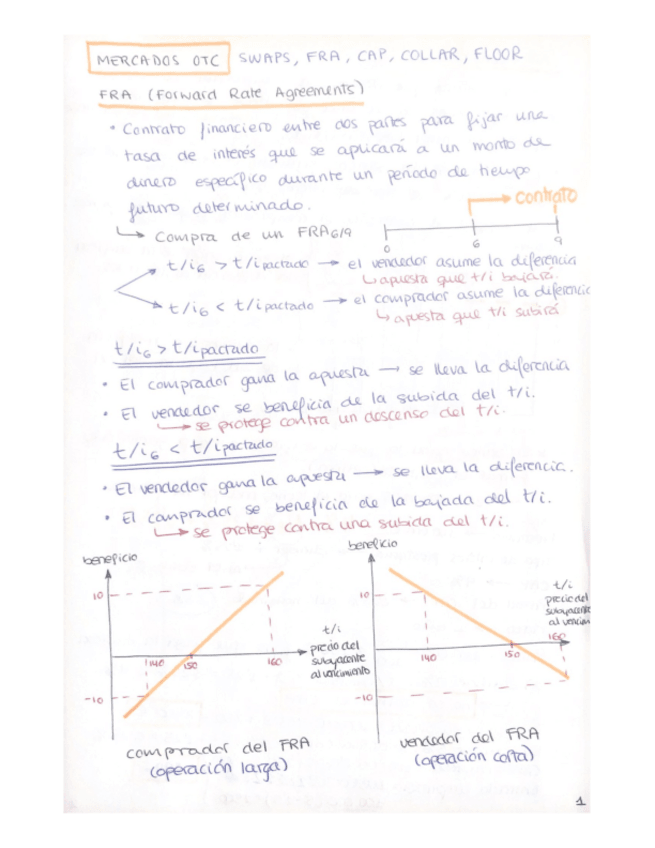 MERCADOS OTC SWAPS, FRA, CAP, COLLAR, FLOOR
FRA (Forward Rate Agreements)
• Contrato financiero entre dos partes para fijar una
tasa de interés que se aplicará a un monto de
dinero específico durante un período de tiempo
futuro determinado.
contrato
Compra de un FRA6/9
0 6 9
t/i6 > t/i pactado → el vendedor asume la diferencia
apuesta que t/i bajará.
t/i6 < t/i pactado → el comprador asume la diferencia
apuesta que t/i subirá
t/i6 > t/i pactado
• El comprador gana la apuesta → se lleva la diferencia
• El vendedor se beneficia de la subida del t/i.
se protege contra un descenso del t/i.
t/i6 < t/i pactado
• El vendedor gana la apuesta → se lleva la diferencia.
• El comprador se beneficia de la bajada del t/i.
se protege contra una subida del t/i.
beneficio
10
-10
140 150 160
t/i
precio del
subyacente
al vencimiento
comprador del FRA
(operación larga)
beneficio
10
-10
140 150 160
t/i
precio del
subyacente
al vencim
vendedor del FRA
(operación corta)
1